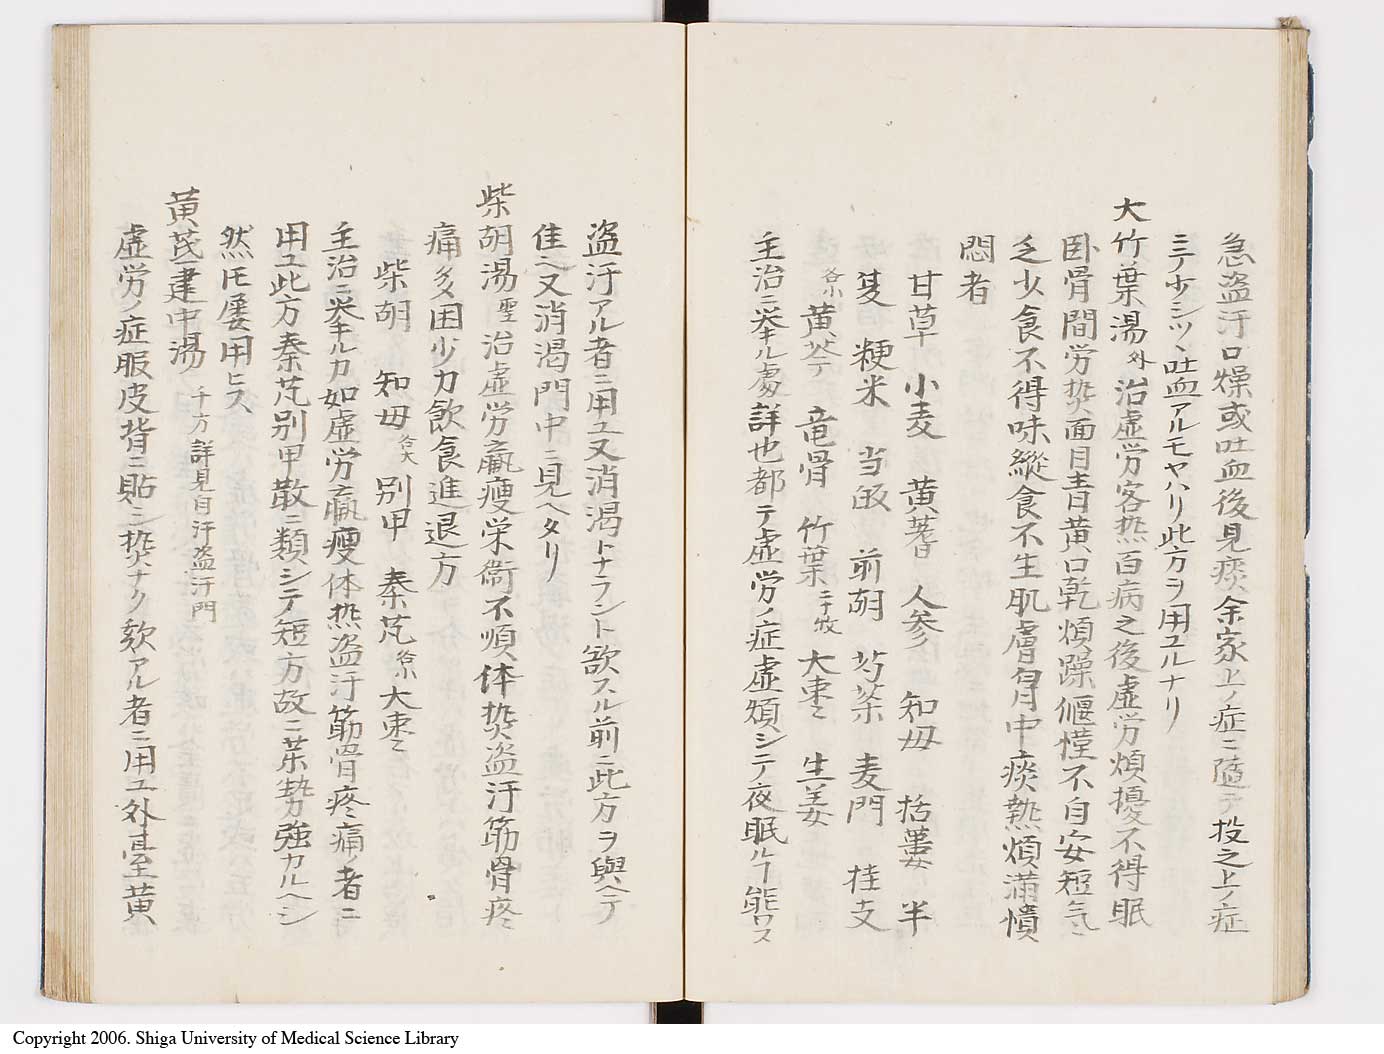 急盗汗口燥或吐血後見痰余家上ノ症ニ隨テ投之上ノ症
ニテ少シツヽ吐血アルモヤハリ此方ヲ用ユルナリ
大竹葉湯 外 治虚労客热百病之後虚労煩擾不得眠
卧骨間労热面目青黄口乾煩躁偃㦬不自安短気
乏少食不得味縱食不生肌膚胷中痰熱煩滿憤
悶者
甘草 小麦 黄蓍 人参 知母 括蔞 半
夏 粳米 当皈 前胡 芍薬 麦門 桂支
各小 黄芩 竜骨 竹葉 二十枚 大棗 生姜
主治ニ挙ル処詳也都テ虚労ノ症虚煩シテ夜眠ルヿ能ワス
盗汗アル者ニ用ユ又消渇トナラント欲スル前ニ此方ヲ與ヘテ
佳之又消渇門中ニ見ヘタリ
柴胡湯 聖 治虚労羸痩栄衞不順体热盗汗筋骨疼
痛多困少力飲食進退方
柴胡 知母 各大 別甲 秦芃 各小 大棗
主治ニ挙ルカ如虚労羸痩体热盗汗筋骨疼痛ノ者ニ
用ユ此方秦芃別甲散ニ類シテ短方故ニ薬勢強カルヘシ
然𪜈屡用ヒス
黄芪建中湯 千方詳見自汗盗汗門
虚労ノ症服皮背ニ貼シ热ナク欬アル者ニ用ユ外臺黄
Copyright 2006. Shiga University of Medical Science Library